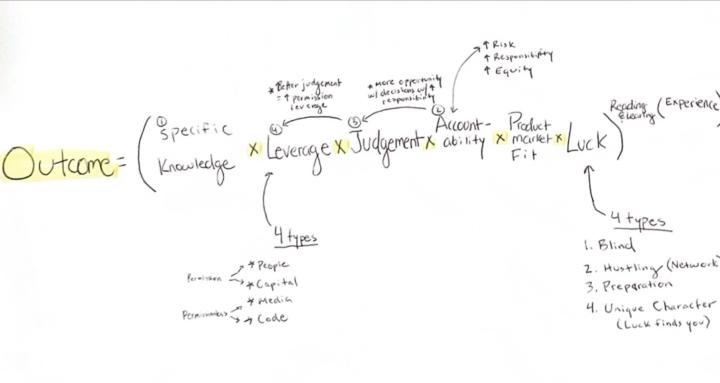 ↑ Risk
↑ Responsibility
↑ Equity
* Better judgement
= ↑ permission
leverage
* More opportunity
w/ decisions w/ ↑
responsibility
Outcome = (① Specific Knowledge x ④ Leverage x ③ Judgement x ② Account-ability x Product market Fit x Luck) Reading Executing (Experience)
4 types
Permission
* People
* Capital
Permissionless
* Media
* Code
4 types
1. Blind
2. Hustling (Network)
3. Preparation
4. Unique Character
(Luck finds you)